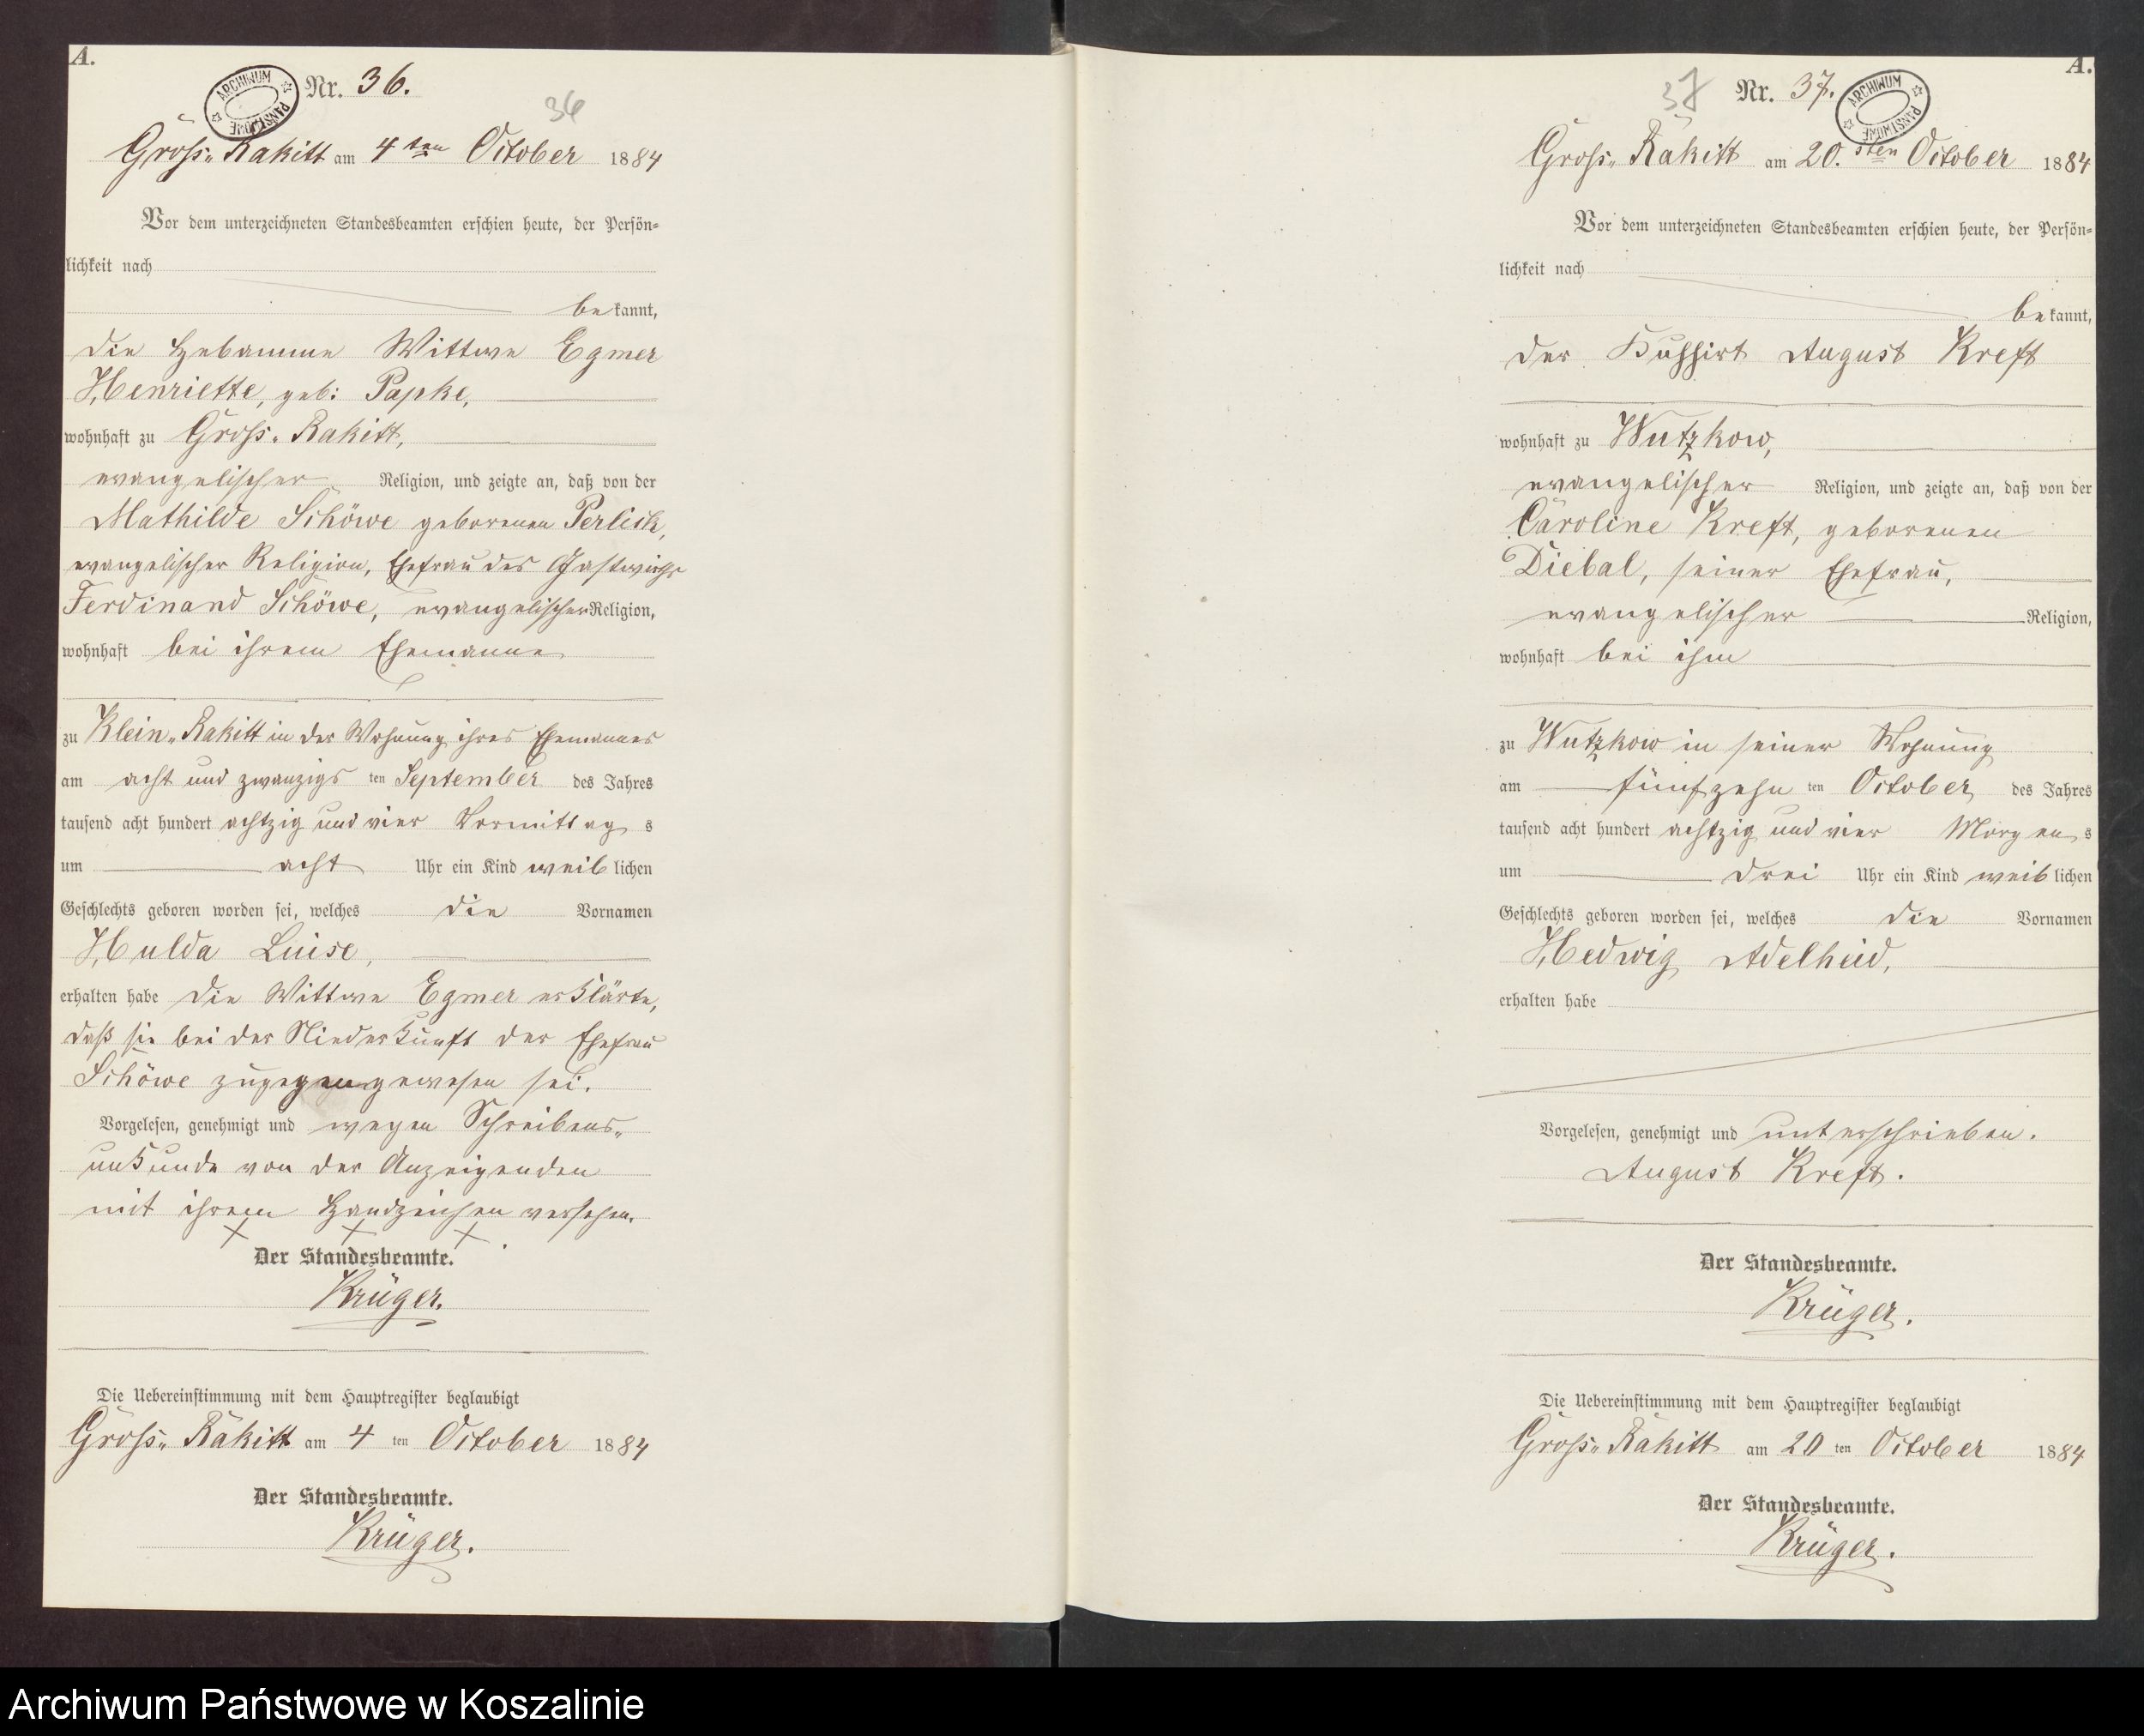 A.
ARCHIWUM PAŃSTWOWE
Nr. 36.
36
Gross„ Rakitt am 4 ten October 1884
Vor dem unterzeichneten Standesbeamten erschien heute, der Persön=
lichkeit nach
bekannt,
die Hebamme Wittwe Egmer
Henriette, geb: Papke,
wohnhaft zu Gross„ Rakitt,
evangelischer Religion, und zeigte an, daß von der
Mathilde Schöwe geborenen Perlick,
evangelischer Religion, Ehefrau des Gastwirths
Ferdinand Schöwe, evangelischer Religion,
wohnhaft bei ihrem Ehemanne
zu Klein„ Rakitt in der Wohnung ihres Ehemannes
am acht und zwanzigs ten September des Jahres
tausend acht hundert achtzig und vier Vormittag s
um acht Uhr ein Kind weiblichen
Geschlechts geboren worden sei, welches die Vornamen
Hulda Luise,
erhalten habe die Wittwe Egmer erklärte,
daß sie bei der Niederkunft der Ehefrau
Schöwe zugegen gewesen sei.
Vorgelesen, genehmigt und wegen Schreibens„
unkunde von der Anzeigenden
mit ihrem Handzeichen versehen.
X X X
Der Standesbeamte.
Krüger.
Die Uebereinstimmung mit dem Hauptregister beglaubigt
Gross„ Rakitt am 4 ten October 1884
Der Standesbeamte.
Krüger.
A.
37
Nr. 37.
ARCHIWUM PAŃSTWOWE
Gross„ Rakitt am 20. sten October 1884
Vor dem unterzeichneten Standesbeamten erschien heute, der Persön=
lichkeit nach
bekannt,
der Kuhhirt August Kreft
wohnhaft zu Wutzkow,
evangelischer Religion, und zeigte an, daß von der
Caroline Kreft, geborenen
Diebal, seiner Ehefrau,
evangelischer Religion,
wohnhaft bei ihm
zu Wutzkow in seiner Wohnung
am fünfzehn ten October des Jahres
tausend acht hundert achtzig und vier Morgen s
um drei Uhr ein Kind weiblichen
Geschlechts geboren worden sei, welches die Vornamen
Hedwig Adelheid,
erhalten habe
Vorgelesen, genehmigt und unterschrieben.
August Kreft.
Der Standesbeamte.
Krüger.
Die Uebereinstimmung mit dem Hauptregister beglaubigt
Gross„ Rakitt am 20 ten October 1884
Der Standesbeamte.
Krüger.
Archiwum Państwowe w Koszalinie